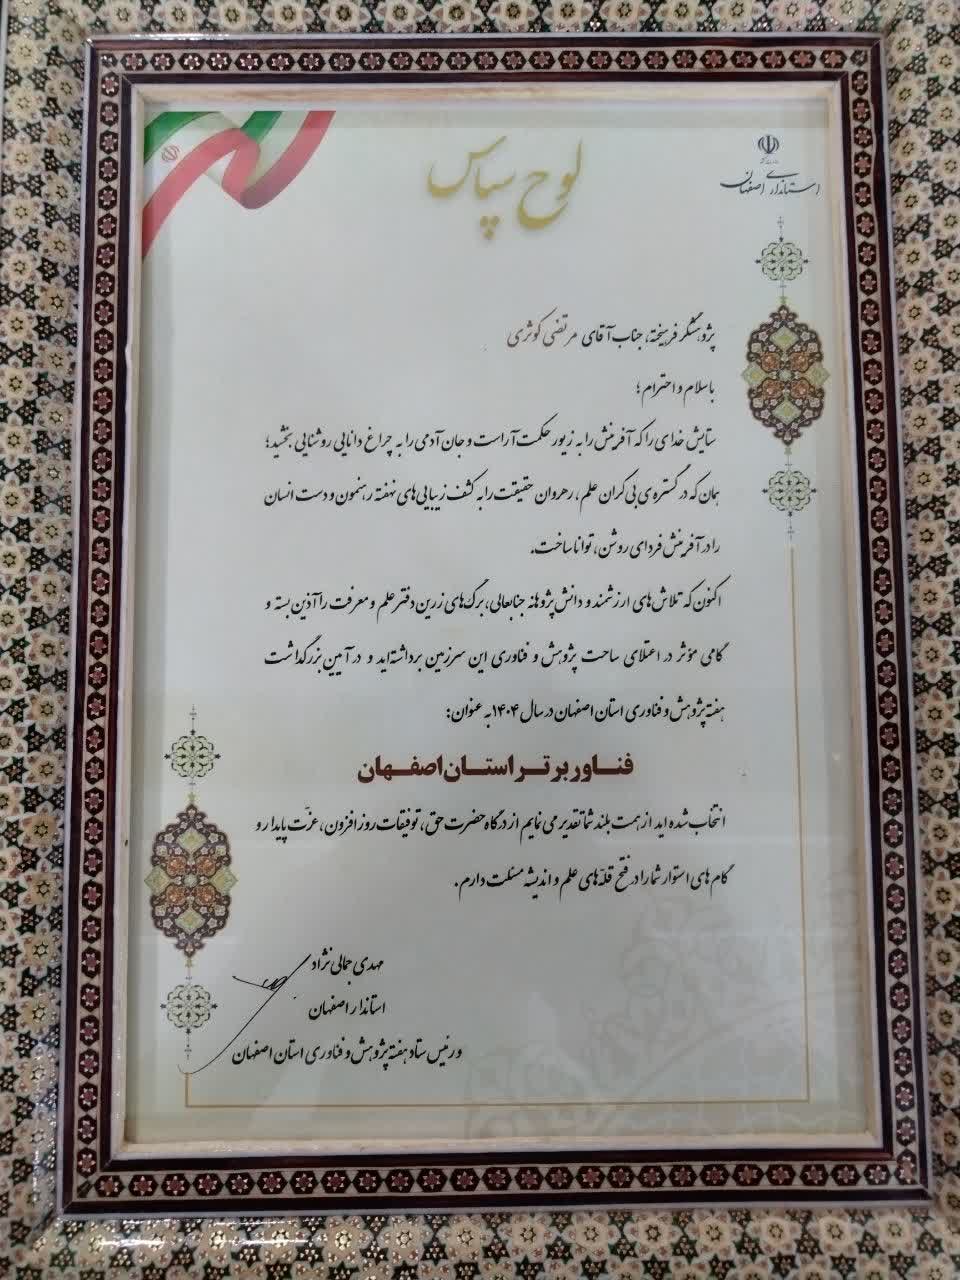 لوح سپاس
وزارت کشور
استانداری اصفهان
پژوهشگر فرهیخته، جناب آقای مرتضی کوثری
با سلام و احترام؛
ستایش خدای را که آفرینش را به زیور حکمت آراست و جان آدمی را به چراغ دانایی روشنایی بخشید؛
همان که در گستره‌ی بی‌کران علم، رهروان حقیقت را به کشف زیبایی‌های نهفته رهنمون و دست انسان
را در آفرینش فردای روشن، توانا ساخت.
اکنون که تلاش‌های ارزشمند و دانش‌پژوهانه جنابعالی، برگ‌های زرین دفتر علم و معرفت را آذین بسته و
گامی مؤثر در اعتلای ساحت پژوهش و فناوری این سرزمین برداشته‌اید و در آیین بزرگداشت
هفته پژوهش و فناوری استان اصفهان در سال ۱۴۰۴ به عنوان:
فناور برتر استان اصفهان
انتخاب شده اید از همت بلند شما تقدیر می نمایم از درگاه حضرت حق، توفیقات روز افزون، عزّت پایدار و
گام های استوار شما را در فتح قلّه‌های علم و اندیشه مسئلت دارم.
مهدی جمالی نژاد
استاندار اصفهان
و رئیس ستاد هفته پژوهش و فناوری استان اصفهان